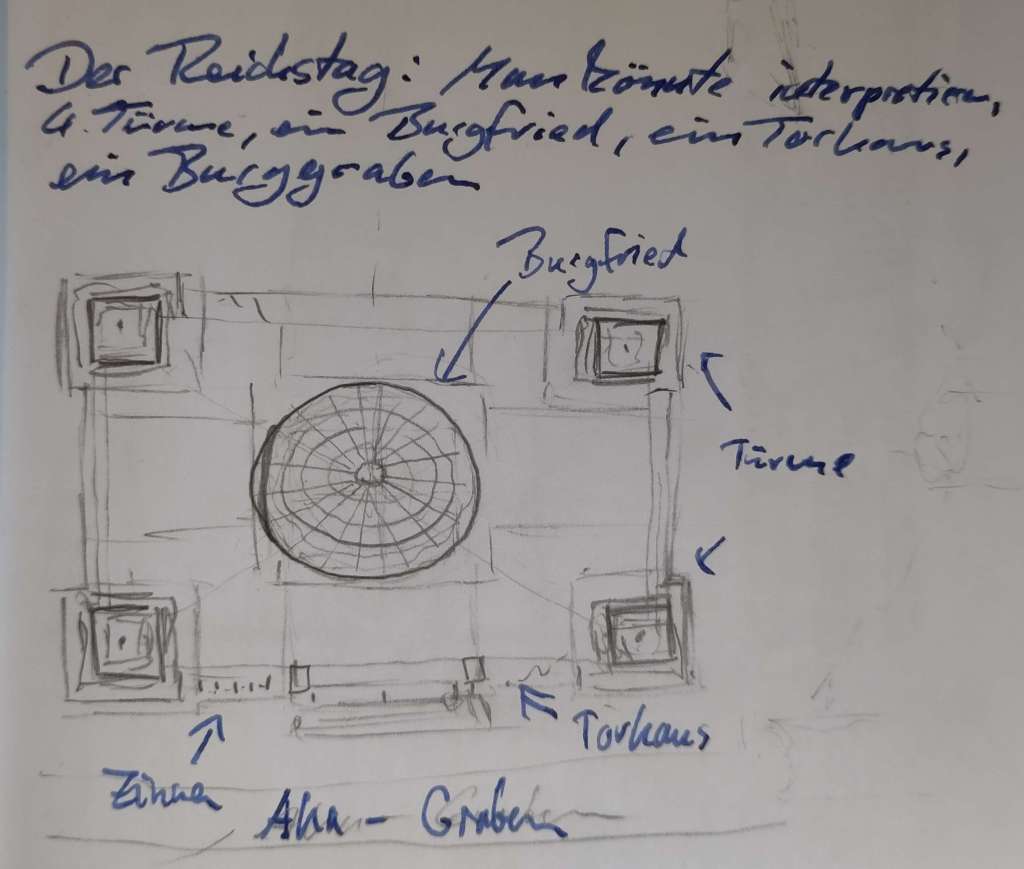 Der Reichstag: Man könnte interpretieren,
4. Türme, ein Burgfried, ein Torhaus,
ein Burggraben
Burgfried
Türme
Torhaus
Zinnen
Aha - Graben